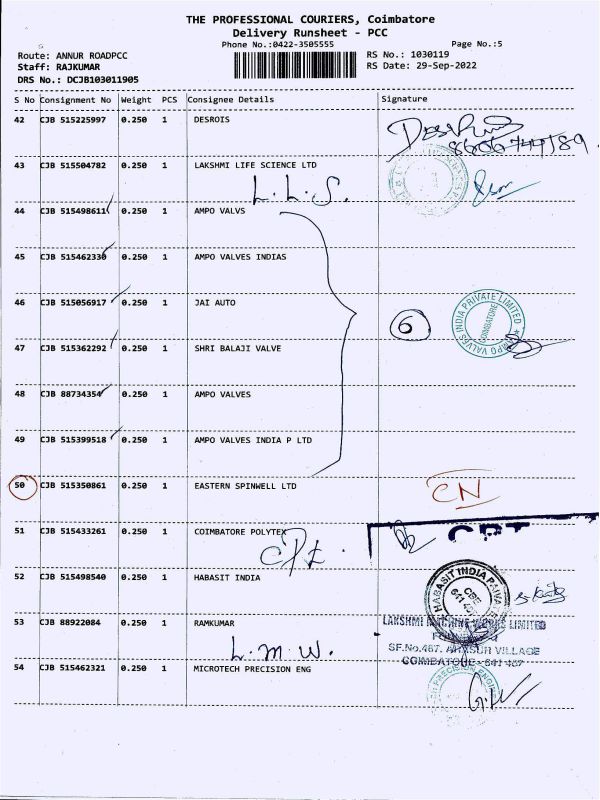 THE PROFESSIONAL COURIERS, Coimbatore
Delivery Runsheet - PCC
Phone No.:0422-3505555
Page No.:5
Route: ANNUR ROADPCC
RS No.: 1030119
Staff: RAJKUMAR
RS Date: 29-Sep-2022
DRS No.: DCJB103011905
S No Consignment No Weight PCS Consignee Details Signature
42 CJB 515225997 0.250 1 DESROIS
8606744589
43 CJB 515504782 0.250 1 LAKSHMI LIFE SCIENCE LTD
L.L.S.
44 CJB 515498611 0.250 1 AMPO VALVS
45 CJB 515462330 0.250 1 AMPO VALVES INDIAS
46 CJB 515056917 0.250 1 JAI AUTO
6
AMPO VALVES INDIA PRIVATE LIMITED
COIMBATORE
47 CJB 515362292 0.250 1 SHRI BALAJI VALVE
48 CJB 88734354 0.250 1 AMPO VALVES
49 CJB 515399518 0.250 1 AMPO VALVES INDIA P LTD
50 CJB 515350861 0.250 1 EASTERN SPINWELL LTD
CN
51 CJB 515433261 0.250 1 COIMBATORE POLYTEX
52 CJB 515498540 0.250 1 HABASIT INDIA
HABASIT INDIA PRIVATE
CBE
53 CJB 88922084 0.250 1 RAMKUMAR
LAKSHMI MACHINE WORKS LIMITED
L.M.W.
SF.No.487. ARASUR VILLAGE
COIMBATORE-641 407
54 CJB 515462321 0.250 1 MICROTECH PRECISION ENG